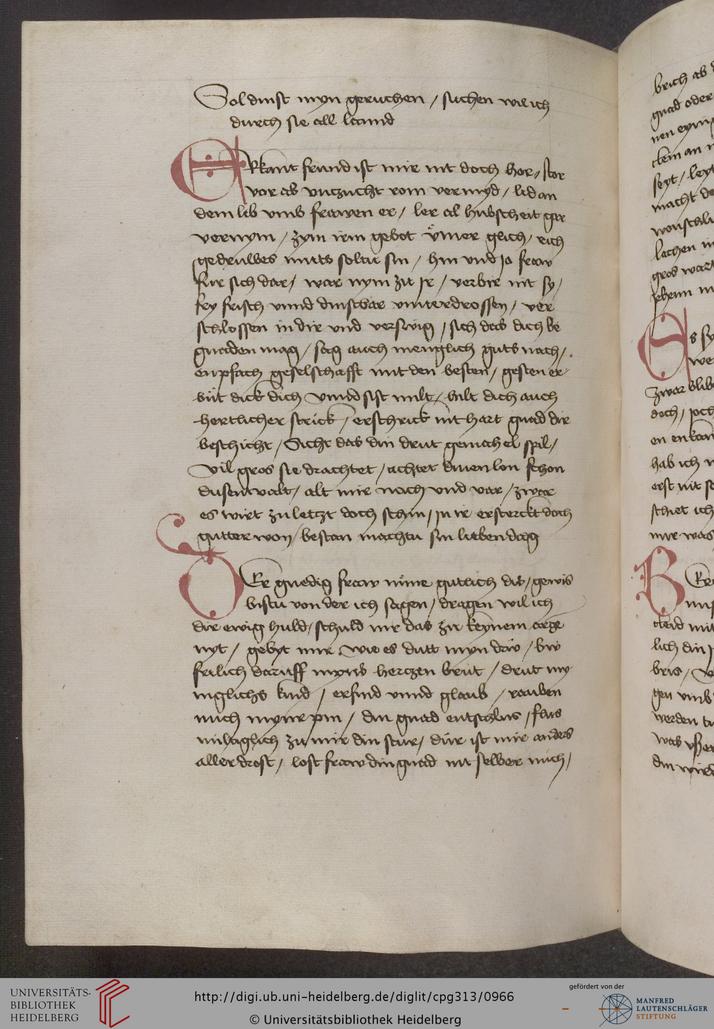 Sol dinst myn geruchen / suchen wil ich
durch sie all lannd
ERkant frund ist mir nit doch hor / stor
vor ab vnzucht rom vermyd / lid an
dem lib vmb frauwen er / ler al hubscheit gar
vernym / zym irm gebot ymer glich / rich
gedrulbes nicts soltu sin / hin vnd ja frow
fur sich dar / war nym zit jr / verbir nit sy /
frey frisch vnnd dinstbar vnuerdrossen / ver
schlossen in dir vnd verswig / sich das dich be
gnaden mag / sag auch menglich guts nach /
enpfach geselschafft mit den besten / gesten er
but dick dich vnnd sist milt / bilt dich auch
hertlicher strick / erschrick nit hart gnad dir
beschicht / Sicht das din drut gemahel spil /
Vil gros sie drachtet / achtet diuen lon schon
dusentualt / alt mir nach vnd var / zwar
es wirt zu letzt doch schin / in ir ersterckt doch
gutter won / bestan machtu sin lieben dag
DEr gnedig frow nime gutlich dis / gewis
bistu von der ich sagen / dragen wil ich
dir ewig huld / schuld mir das zu keynem arge
nyt / gebyt mir wie es dutt myn draw / buw
frilich daruff myns hertzen brut / drut my
niglichs kind / erfind vnnd glaub / rauben
mich myner pin / din gnad entschlus / flus
miltiglich zu mir din stur / dur ist mir anders
aller drost / lost frow din gnad nit selber mich /
brich ab
gnad oder
nen eym
dem an
seyt / ley
macht
lachen
gros wart
Es sy
zwar blib
doch / joch
en enkan
hab ich
erst nit
schiet ich
mir was
leid mit
lich din
bris /
gen vmb
werden
was vßer
din wirt
UNIVERSITÄTS-
BIBLIOTHEK
HEIDELBERG
http://digi.ub.uni-heidelberg.de/diglit/cpg313/0966
© Universitätsbibliothek Heidelberg
gefördert von der
MANFRED
LAUTENSCHLÄGER
STIFTUNG